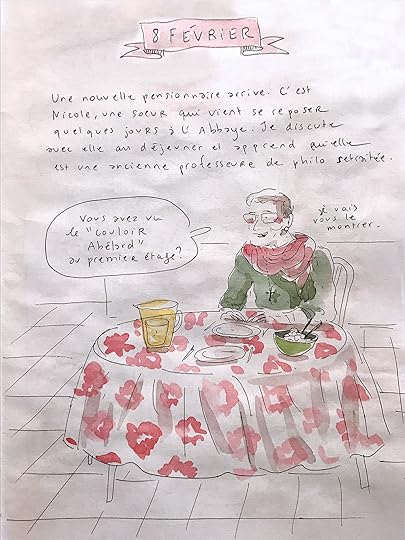 8 FÉVRIER
Une nouvelle pensionnaire arrive. C'est
Nicole, une soeur qui vient se reposer
quelques jours à l'Abbaye. Je discute
avec elle au déjeuner et apprend qu'elle
est une ancienne professeure de philo retraitée.
Vous avez vu
le "couloir
Abélard"
au premier étage?
je vais
vous le
montrer.